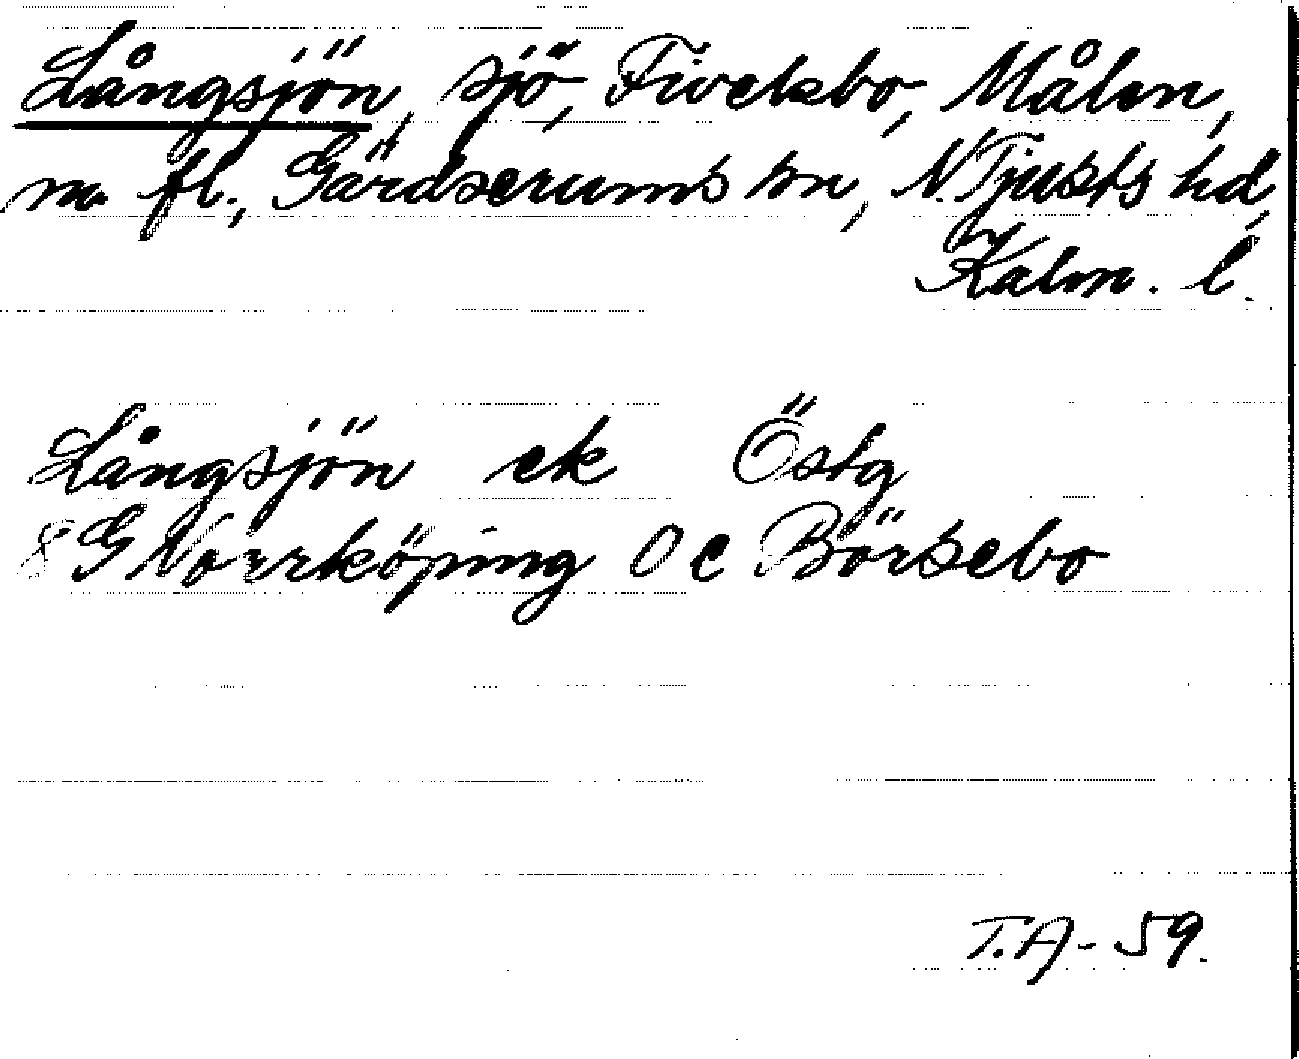 Långsjön, sjö, Fivekbo, Målen,
m. fl., Gärdserums sn, N. Tjusts hd,
Kalm. l.
Långsjön ek Östg
8 G Norrköping 0 e Börsebo
T.A-59.